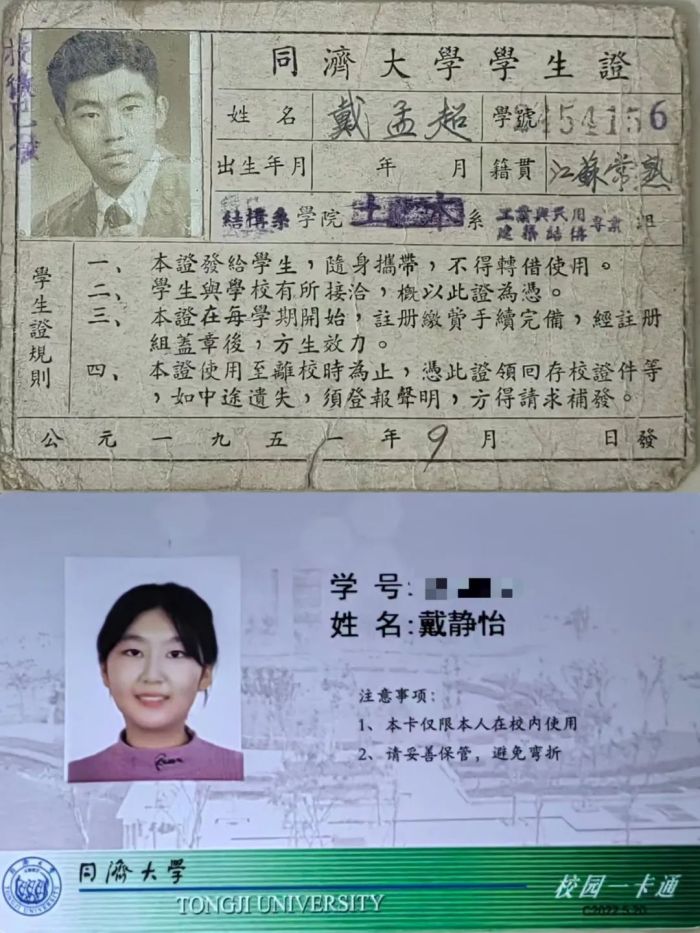 同濟大學學生證
姓名 戴孟超 學號 454156
出生年月 年 月 籍貫 江蘇常熟
結構系 學院 土木 系 工業與民用建築結構專業 組
學生證規則
一、本證發給學生，隨身攜帶，不得轉借使用。
二、學生與學校有所接洽，概以此證為憑。
三、本證在每學期開始，註册繳費手續完備，經註册
組蓋章後，方生效力。
四、本證使用至離校時為止，憑此證領回存校證件等
，如中途遺失，須登報聲明，方得請求補發。
公元一九五一年9月 日發
学号:
姓名:戴静怡
注意事项:
1、本卡仅限本人在校内使用
2、请妥善保管，避免弯折
同濟大學
TONGJI UNIVERSITY
校园一卡通